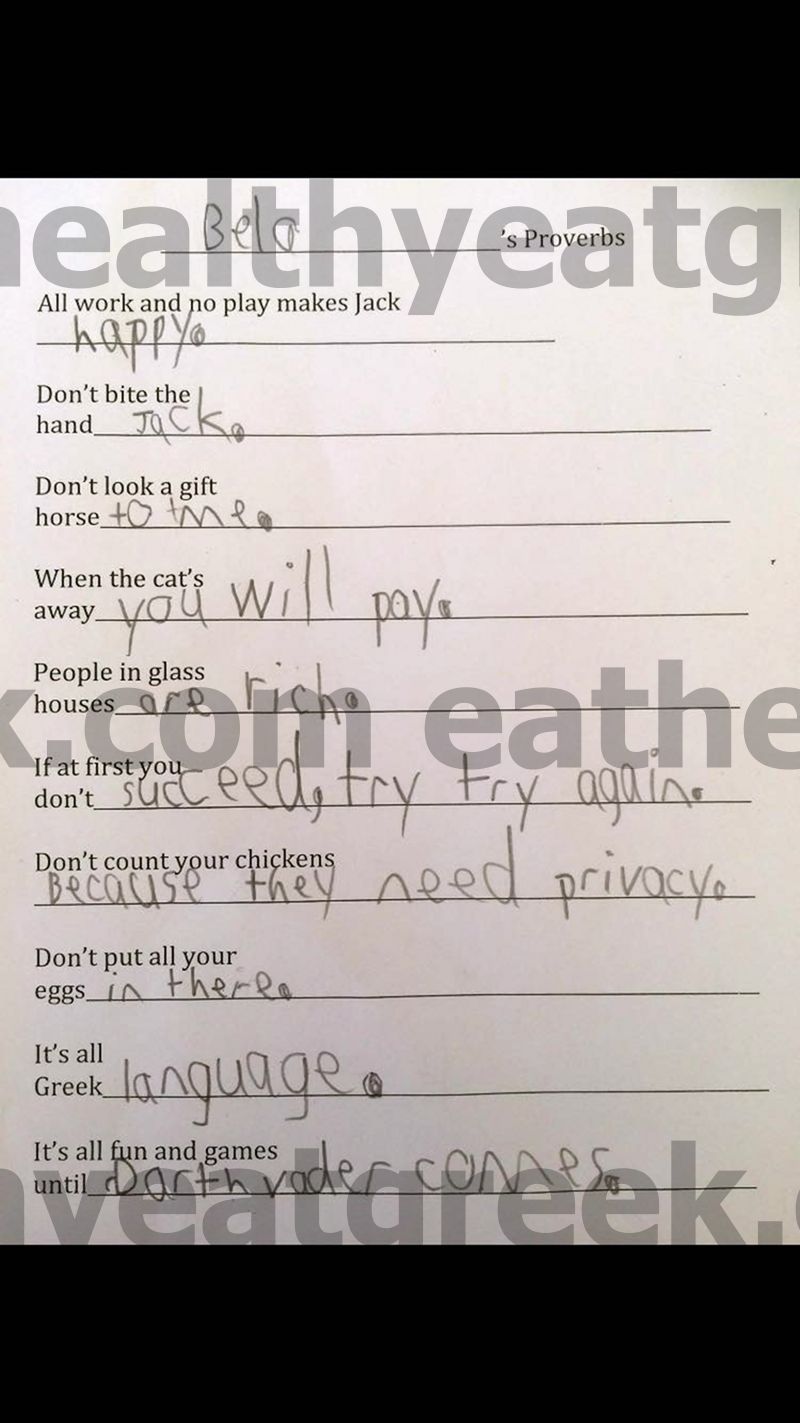 healthyeatg
Bela's Proverbs
All work and no play makes Jack
happy.
Don't bite the
hand Jack.
Don't look a gift
horse to me.
When the cat's
away you will pay.
People in glass
houses are rich.
k.com eathe
If at first you
don't succeed, try try again.
Don't count your chickens
Because they need privacy.
Don't put all your
eggs in there.
It's all
Greek language.
It's all fun and games
until Darth vader comes.
hyeatgreek.c